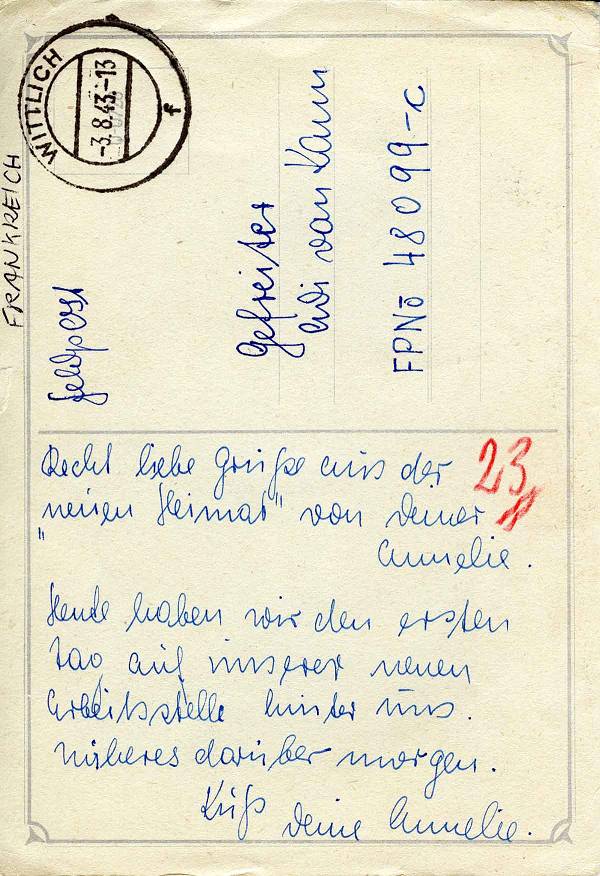 WITTLICH
-3.8.43.-13
f
FRANKREICH
Feldpost
Gefreiter
Adi van Kann
FPNo 48099-c
23
Recht liebe Grüße aus der
"neuen Heimat" von Deiner
Annelie.
Heute haben wir den ersten
Tag auf unserer neuen
Arbeitsstelle hinter uns.
Näheres darüber morgen.
Kuß
Deine Annelie.